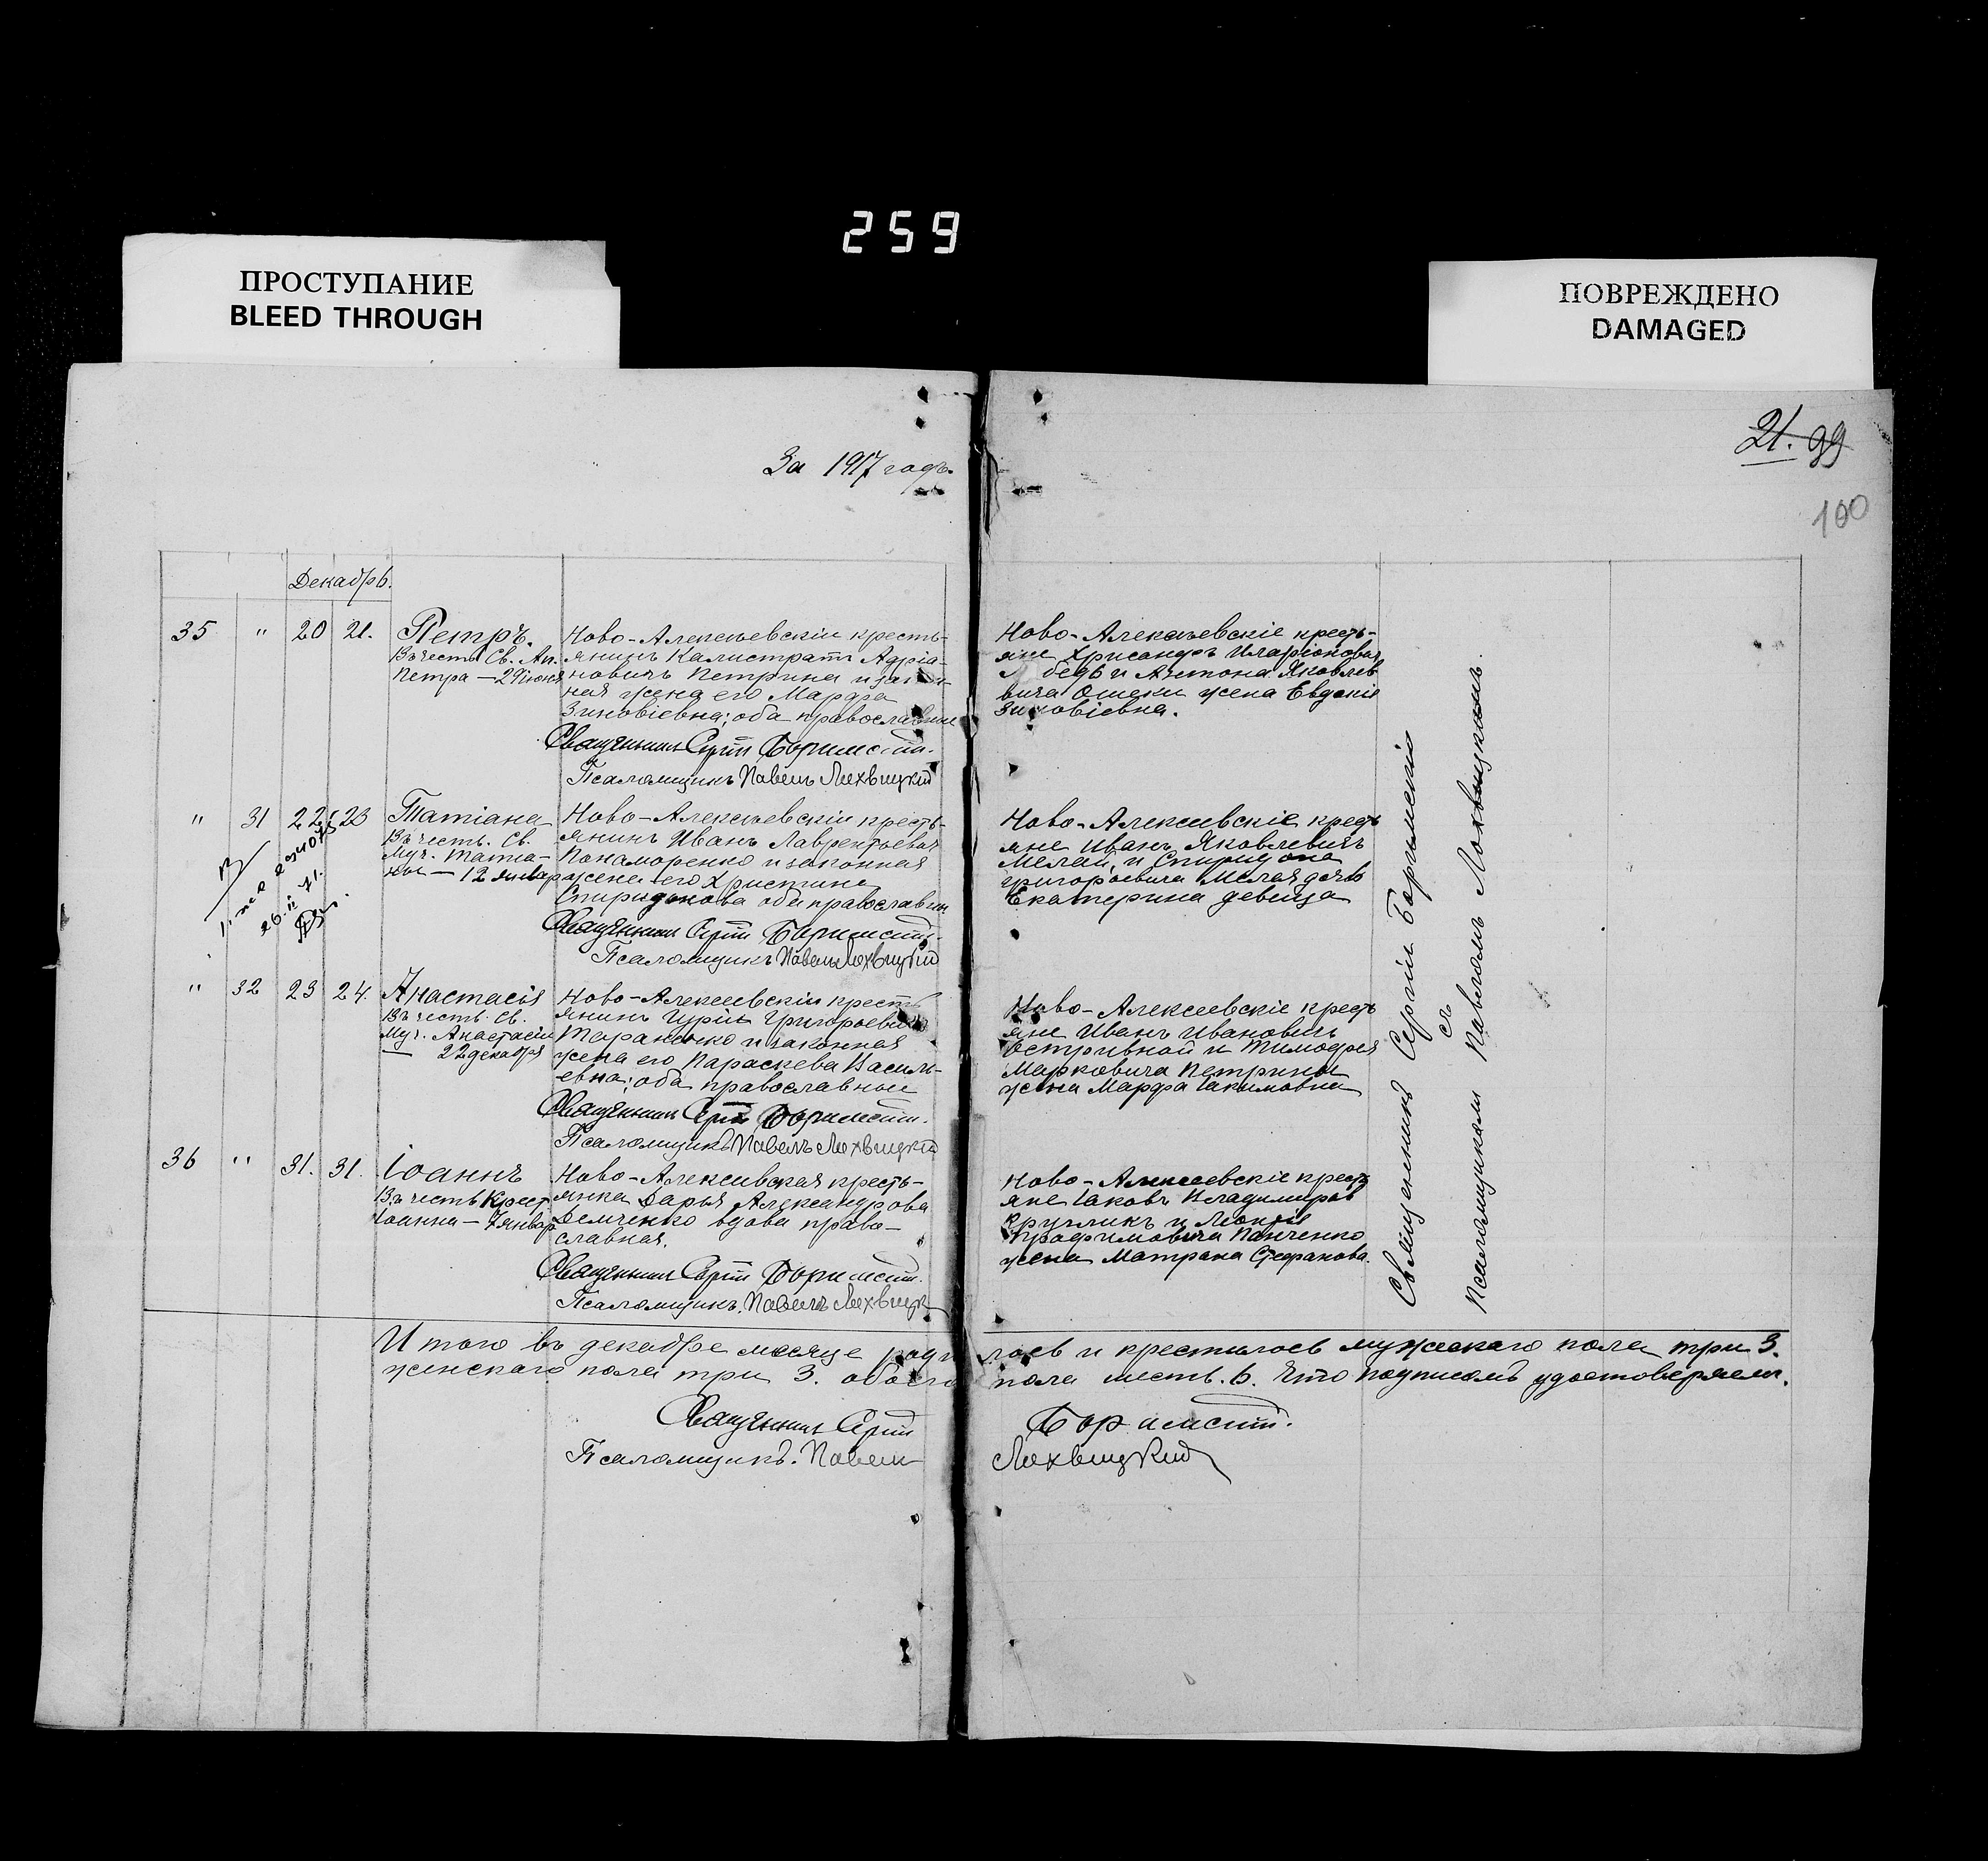 259
ПРОСТУПАНИЕ
BLEED THROUGH
ПОВРЕЖДЕНО
DAMAGED
За 1917 годъ.
21. 99
100
Декабрь.
35 " 20 21.
Петръ.
Въ честь Св. Ап.
Петра — 29 іюня
Ново-Алексѣевскій кресть-
янинъ Калистратъ Адріа-
новичъ Петрина и закон-
ная жена его Марфа
Зиновіевна; оба православные
Священникъ Сергій
Псаломщикъ Павелъ Лохвицкій
Ново-Алексѣевскіе кресть-
яне Хрисанфъ Иларіоновъ
и Антона Яковле
вича жена Евдокія
Зиновіевна.
" 31 22 23
Татіана
Въ честь Св.
Муч. Татіа-
ны — 12 январ
26.II 71.
Ново-Алексѣевскій кресть-
янинъ Иванъ Лаврентьевъ
Понаморенко и законная
жена его Христина
Спиридонова оба православн
Священникъ Сергій
Псаломщикъ Павелъ Лохвицкій
Ново-Алексеевскіе кресть
яне Иванъ Яковлевичъ
Мелай, и Спиридона
Григорьевича Мелая дочь
Екатерина девица
" 32 23 24.
Анастасія
Въ честь Св.
Муч. Анастасіи
— 22 декабря
Ново-Алексеевскій кресть
янинъ Гурій Григорьевичъ
Тараненко и законная
жена его Параскева Василь-
евна; оба православные
Священникъ Сергій
Псаломщикъ Павелъ Лохвицкій
Ново-Алексеевскіе кресть
яне Иванъ Ивановичъ
Остривной и Тимофея
Марковича Петрины
жена Марфа Іакимовна
36 " 31. 31.
Іоаннъ
Въ честь Крест
Іоанна — 7 январ
Ново-Алексеевская кресть-
янка Дарья Александрова
Демченко вдова право-
славная.
Священникъ Сергій
Псаломщикъ Павелъ Лохвицк
Ново-Алексеевскіе кресть
яне Іаковъ Владимиров
Кругликъ и Леонтія
Трофимовича Панченко
жена Матрона Стефанова.
Священникъ Сергій
съ
Псаломщикомъ Павеломъ Лохвицкимъ.
Итого въ декабре месяце роди лось и крестилось мужескаго пола три 3.
женскаго пола три 3. обоего пола шесть. 6. Что подписомъ удостоверяем.
Священникъ Сергій
Псаломщикъ. Павелъ Лохвицкій